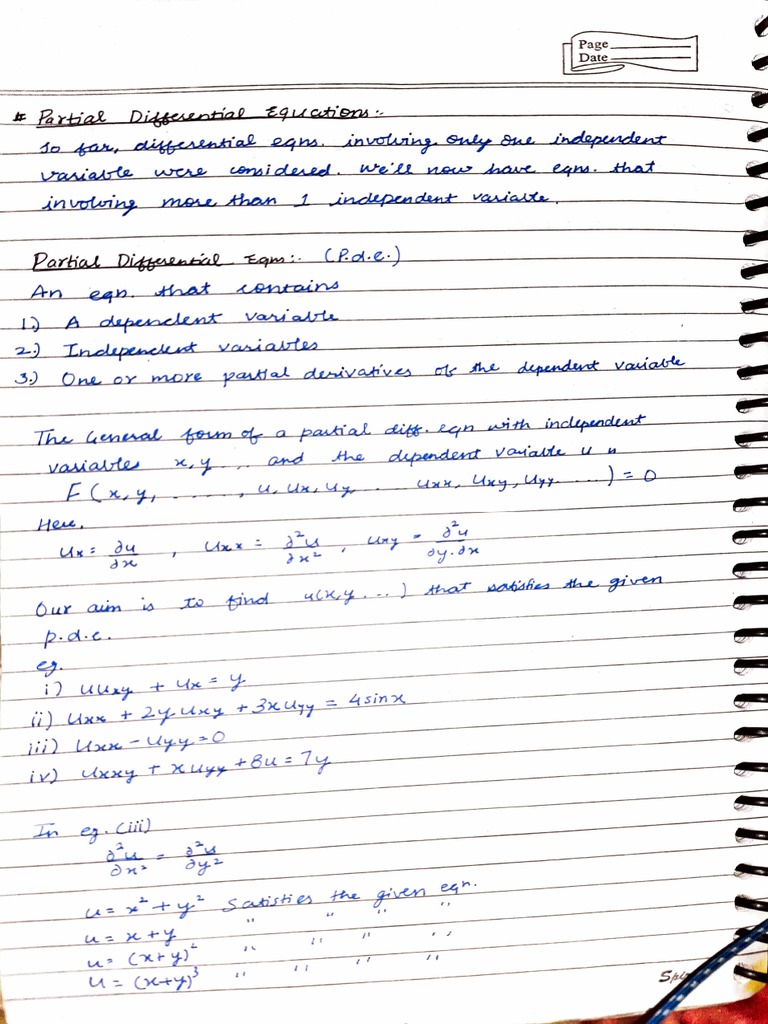 Page
Date
# Partial Differential Equations:-
So far, differential eqns. involving only one independent
variable were considered. We'll now have eqns. that
involving more than 1 independent variable.
Partial Differential Eqns:- (P.d.e.)
An eqn. that contains
1.) A dependent variable
2.) Independent variables
3.) One or more partial derivatives of the dependent variable
The General form of a partial diff. eqn with independent
variables x, y ... and the dependent variable u is
F (x, y, ......, u, ux, uy, ... uxx, uxy, uyy ....) = 0
Here,
ux = ∂u/∂x , uxx = ∂²u/∂x² , uxy = ∂²u/∂y.∂x
Our aim is to find u(x,y ...) that satisfies the given
p.d.e.
eg.
i) uuxy + ux = y
ii) uxx + 2y uxy + 3x uyy = 4 sinx
iii) uxx - uyy = 0
iv) uxxy + x uyy + 8u = 7y
In eg. (iii)
∂²u/∂x² = ∂²u/∂y²
u = x² + y² Satisfies the given eqn.
u = x + y " " " "
u = (x+y)² " " " "
u = (x+y)³ " " " "